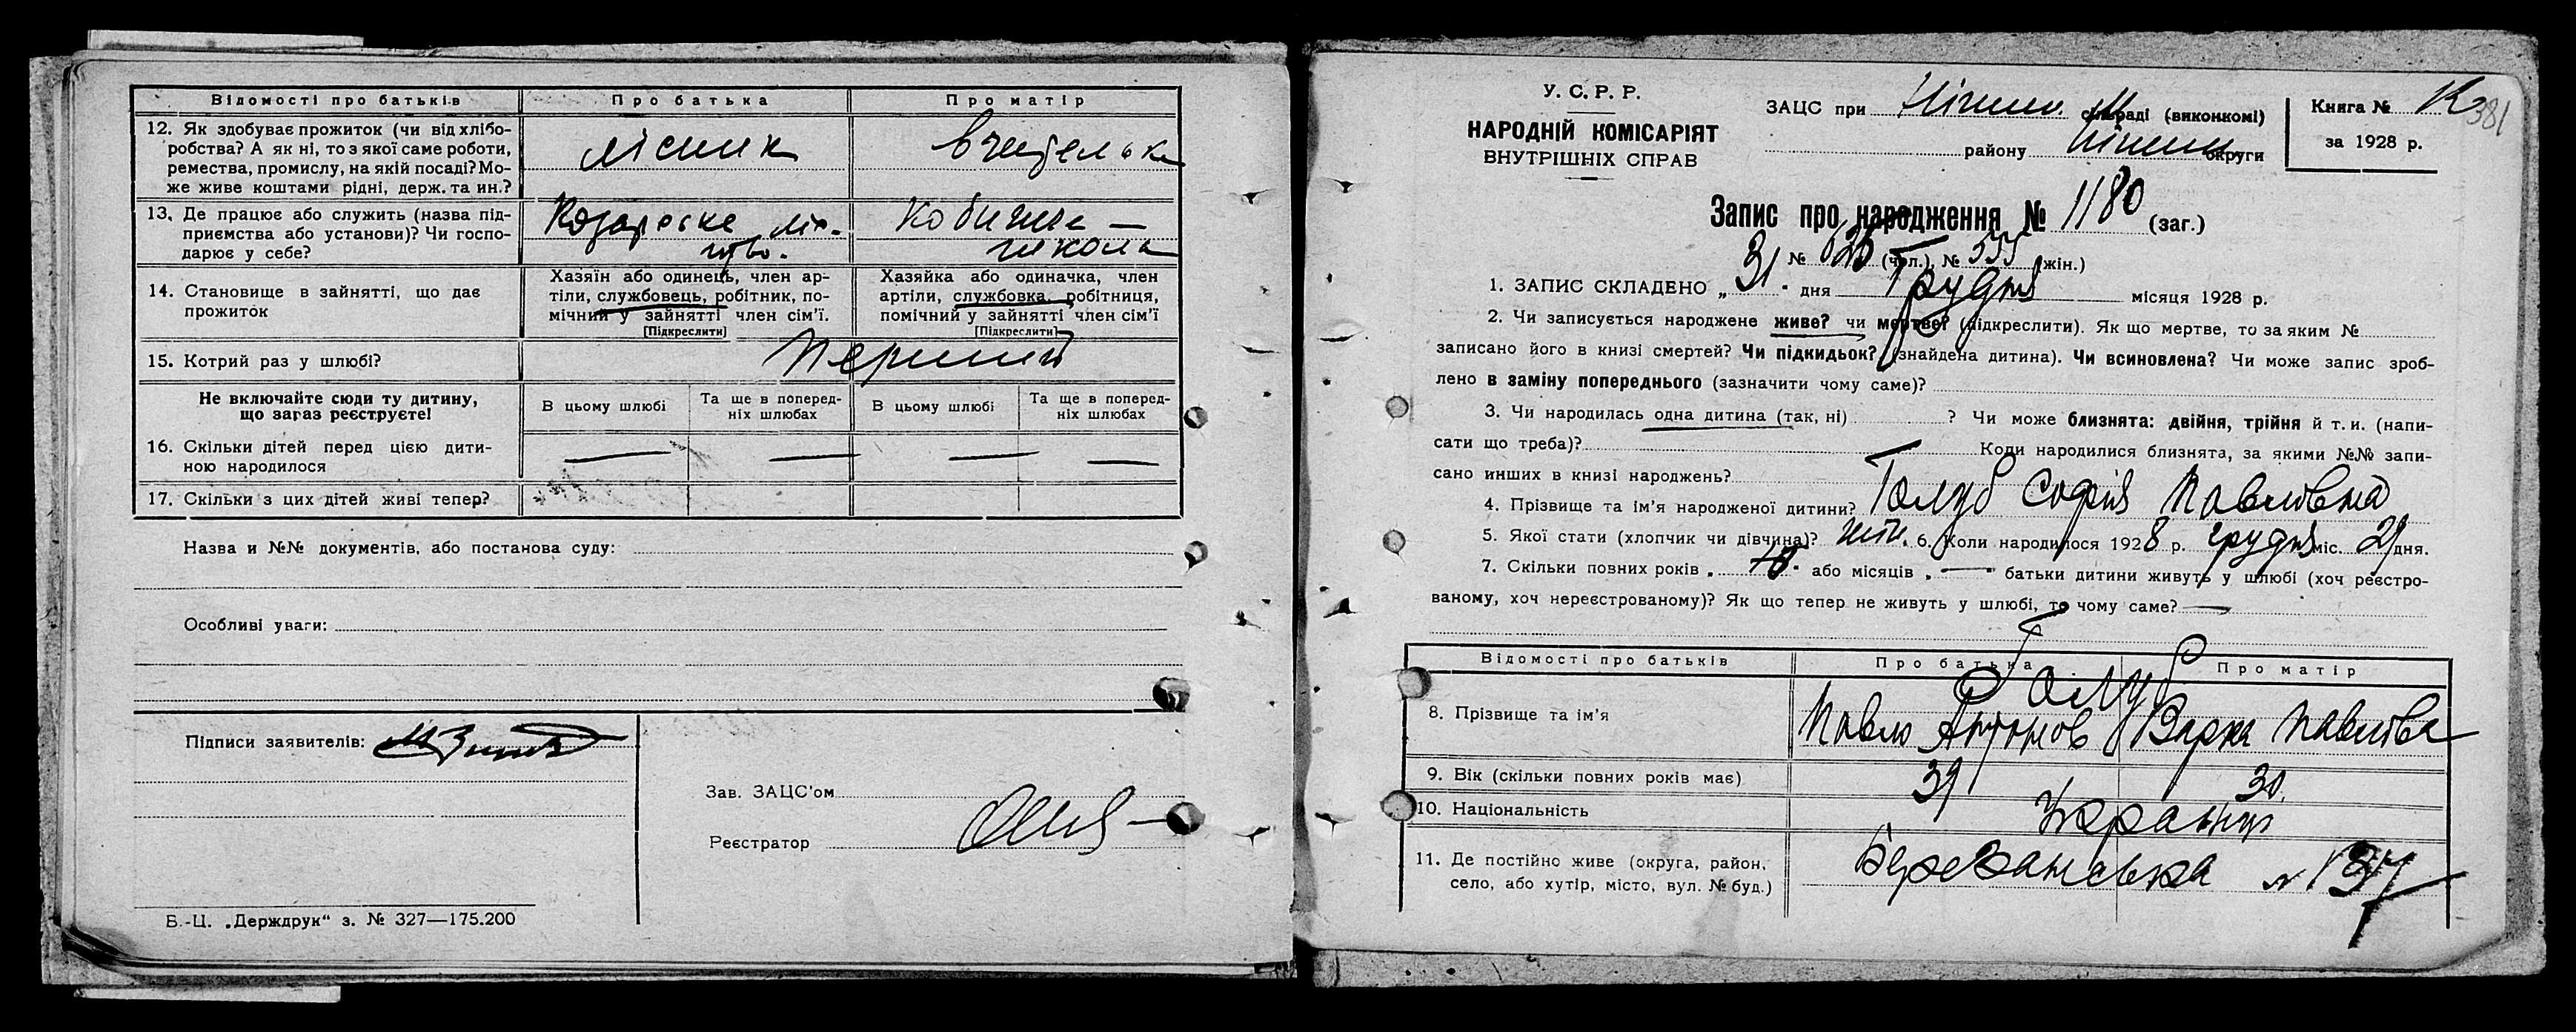 Відомості про батьків Про батька Про матір
12. Як здобуває прожиток (чи від хлібо-
робства? А як ні, то з якої саме роботи,
ремества, промислу, на якій посаді? Мо-
же живе коштами рідні, держ. та ин.?
лісник вчителька
13. Де працює або служить (назва під-
приємства або установи)? Чи госпо-
дарює у себе?
Козарське ліс-
тво. школа
14. Становище в зайнятті, що дає
прожиток
Хазяїн або одинець, член ар-
тіли, службовець, робітник, по-
мічний у зайнятті член сім'ї.
[Підкреслити]
Хазяйка або одиначка, член
артіли, службовка, робітниця,
помічний у зайнятті член сім'ї
[Підкреслити]
15. Котрий раз у шлюбі? перший
Не включайте сюди ту дитину,
що зараз реєструєте!
В цьому шлюбі Та ще в поперед-
ніх шлюбах В цьому шлюбі Та ще в поперед-
ніх шлюбах
16. Скільки дітей перед цією дити-
ною народилося — — — —
17. Скільки з цих дітей живі тепер?
Назва и №№ документів, або постанова суду:
Особливі уваги:
Підписи заявителів:
Зав. ЗАЦС'ом
Реєстратор
Б.-Ц. „Держдрук“ з. № 327—175.200
У. С. Р. Р.
НАРОДНІЙ КОМІСАРІЯТ
ВНУТРІШНІХ СПРАВ
ЗАЦС при Ніжин. М сільраді (виконкомі)
району Ніжин округи
Книга №
за 1928 р.
381
Запис про народження № 1180 (заг.)
№ 625 (чол.), № 555 (жін.)
1. ЗАПИС СКЛАДЕНО „ 31. дня Грудня місяця 1928 р.
2. Чи записується народжене живе? чи мертве? (підкреслити). Як що мертве, то за яким №
записано його в книзі смертей? Чи підкидьок? (знайдена дитина). Чи всиновлена? Чи може запис зроб-
лено в заміну попереднього (зазначити чому саме)?
3. Чи народилась одна дитина (так, ні) ? Чи може близнята: двійня, трійня й т. и. (напи-
сати що треба)? Коли народилися близнята, за якими №№ запи-
сано инших в книзі народжень?
4. Прізвище та ім'я народженої дитини? Голуб Софія Павлівна
5. Якої стати (хлопчик чи дівчина)? жін. 6. Коли народилося 1928 р. грудня міс. 21 дня.
7. Скільки повних років „ 10. або місяців „ — батьки дитини живуть у шлюбі (хоч реєстро-
ваному, хоч нереєстрованому)? Як що тепер не живуть у шлюбі, то чому саме? —
Відомості про батьків Про батька Про матір
Голуб
8. Прізвище та ім'я Павло Антонов Варка Павлівна
9. Вік (скільки повних років має) 39 30.
10. Національність Українці
11. Де постійно живе (округа, район,
село, або хутір, місто, вул. № буд.)
Березанська №